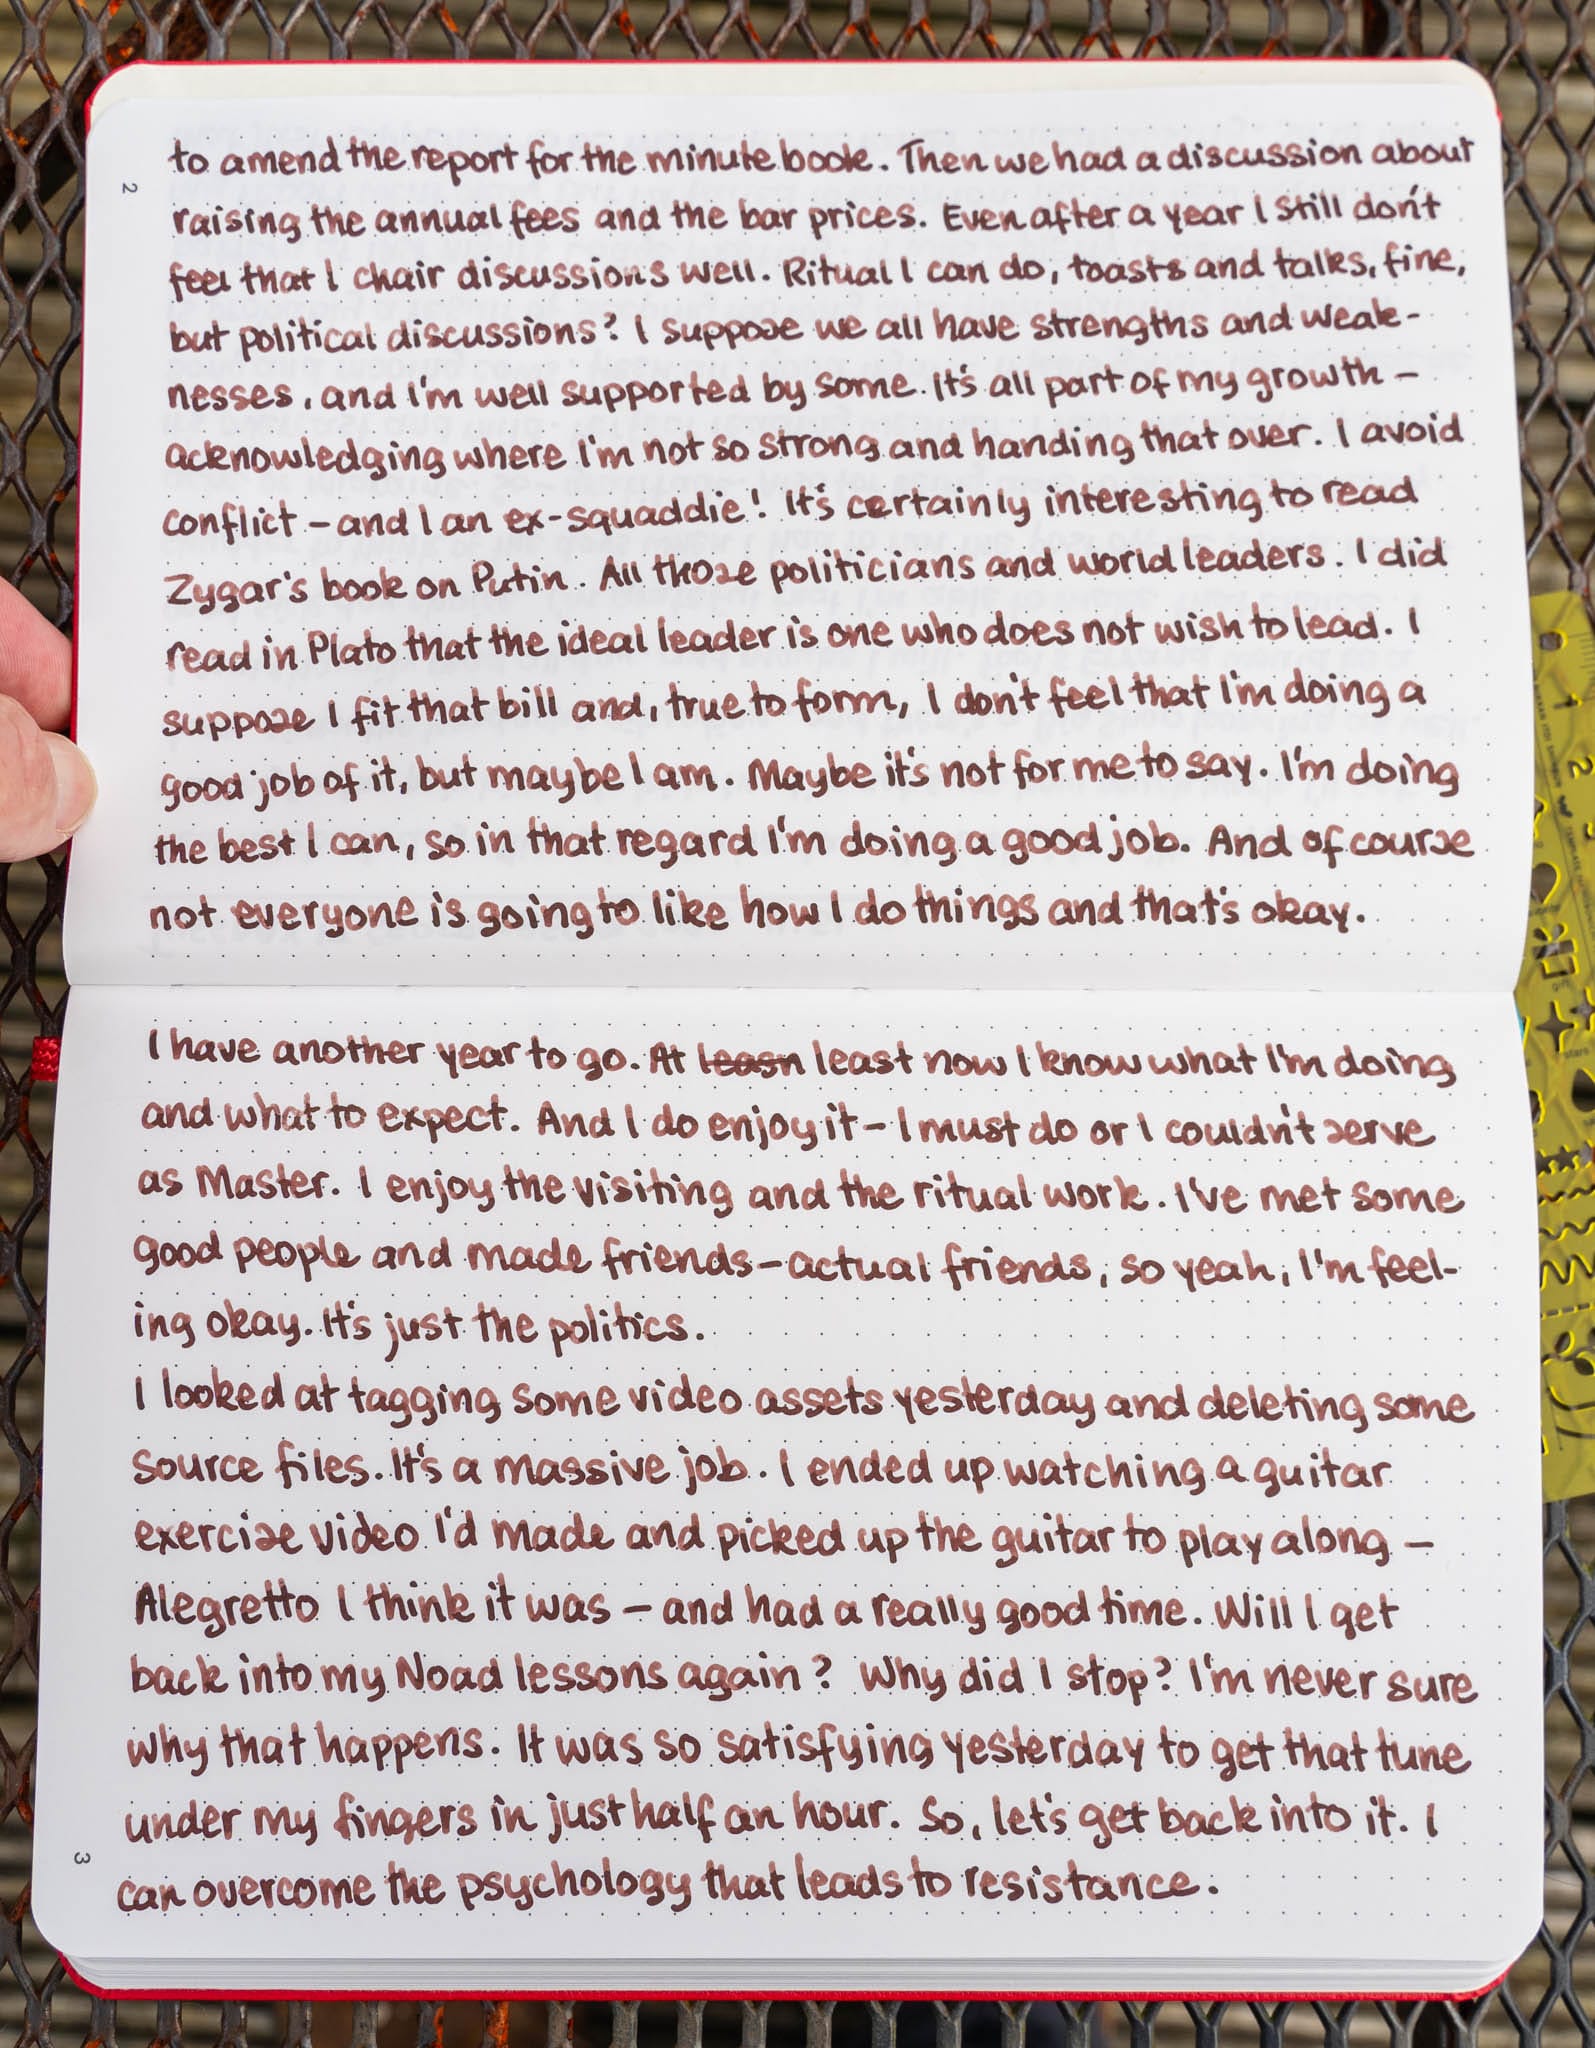 2
to amend the report for the minute book. Then we had a discussion about
raising the annual fees and the bar prices. Even after a year I still don't
feel that I chair discussions well. Ritual I can do, toasts and talks, fine,
but political discussions? I suppose we all have strengths and weak-
nesses, and I'm well supported by some. It's all part of my growth –
acknowledging where I'm not so strong and handing that over. I avoid
conflict – and I an ex-squaddie! It's certainly interesting to read
Zygar's book on Putin. All those politicians and world leaders. I did
read in Plato that the ideal leader is one who does not wish to lead. I
suppose I fit that bill and, true to form, I don't feel that I'm doing a
good job of it, but maybe I am. Maybe it's not for me to say. I'm doing
the best I can, so in that regard I'm doing a good job. And of course
not everyone is going to like how I do things and that's okay.
I have another year to go. At leasn least now I know what I'm doing
and what to expect. And I do enjoy it – I must do or I couldn't serve
as Master. I enjoy the visiting and the ritual work. I've met some
good people and made friends – actual friends, so yeah, I'm feel-
ing okay. It's just the politics.
I looked at tagging some video assets yesterday and deleting some
source files. It's a massive job. I ended up watching a guitar
exercise video I'd made and picked up the guitar to play along –
Alegretto I think it was – and had a really good time. Will I get
back into my Noad lessons again? Why did I stop? I'm never sure
why that happens. It was so satisfying yesterday to get that tune
under my fingers in just half an hour. So, let's get back into it. I
can overcome the psychology that leads to resistance.
3
1
2
gift
stars